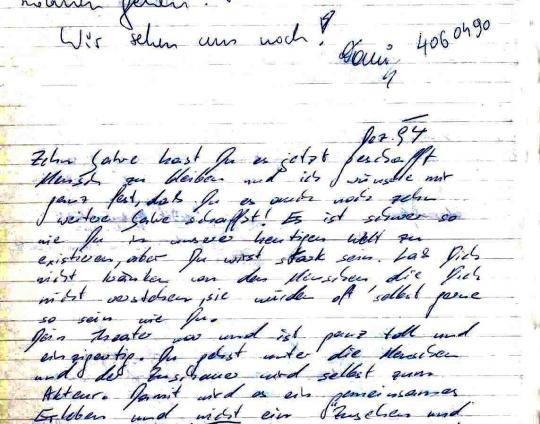 können gehen.
Wir sehen uns noch!
4060490
Dez. 94
Zehn Jahre hast Du es jetzt geschafft
Mensch zu bleiben und ich wünsche mir
ganz fest, daß Du es auch noch zehn
weitere Jahre schaffst! Es ist schwer so
wie Du in unserer heutigen Welt zu
existieren, aber Du wirst stark sein. Laß Dich
nicht kränken von den Menschen die Dich
nicht verstehen, sie würden oft selbst gerne
so sein wie Du.
Dein Theater war und ist ganz toll und
einzigartig. Du gehst unter die Menschen
und der Zuschauer wird selbst zum
Akteur. Damit wird es ein gemeinsames
Erleben und nicht ein "Zusehen und